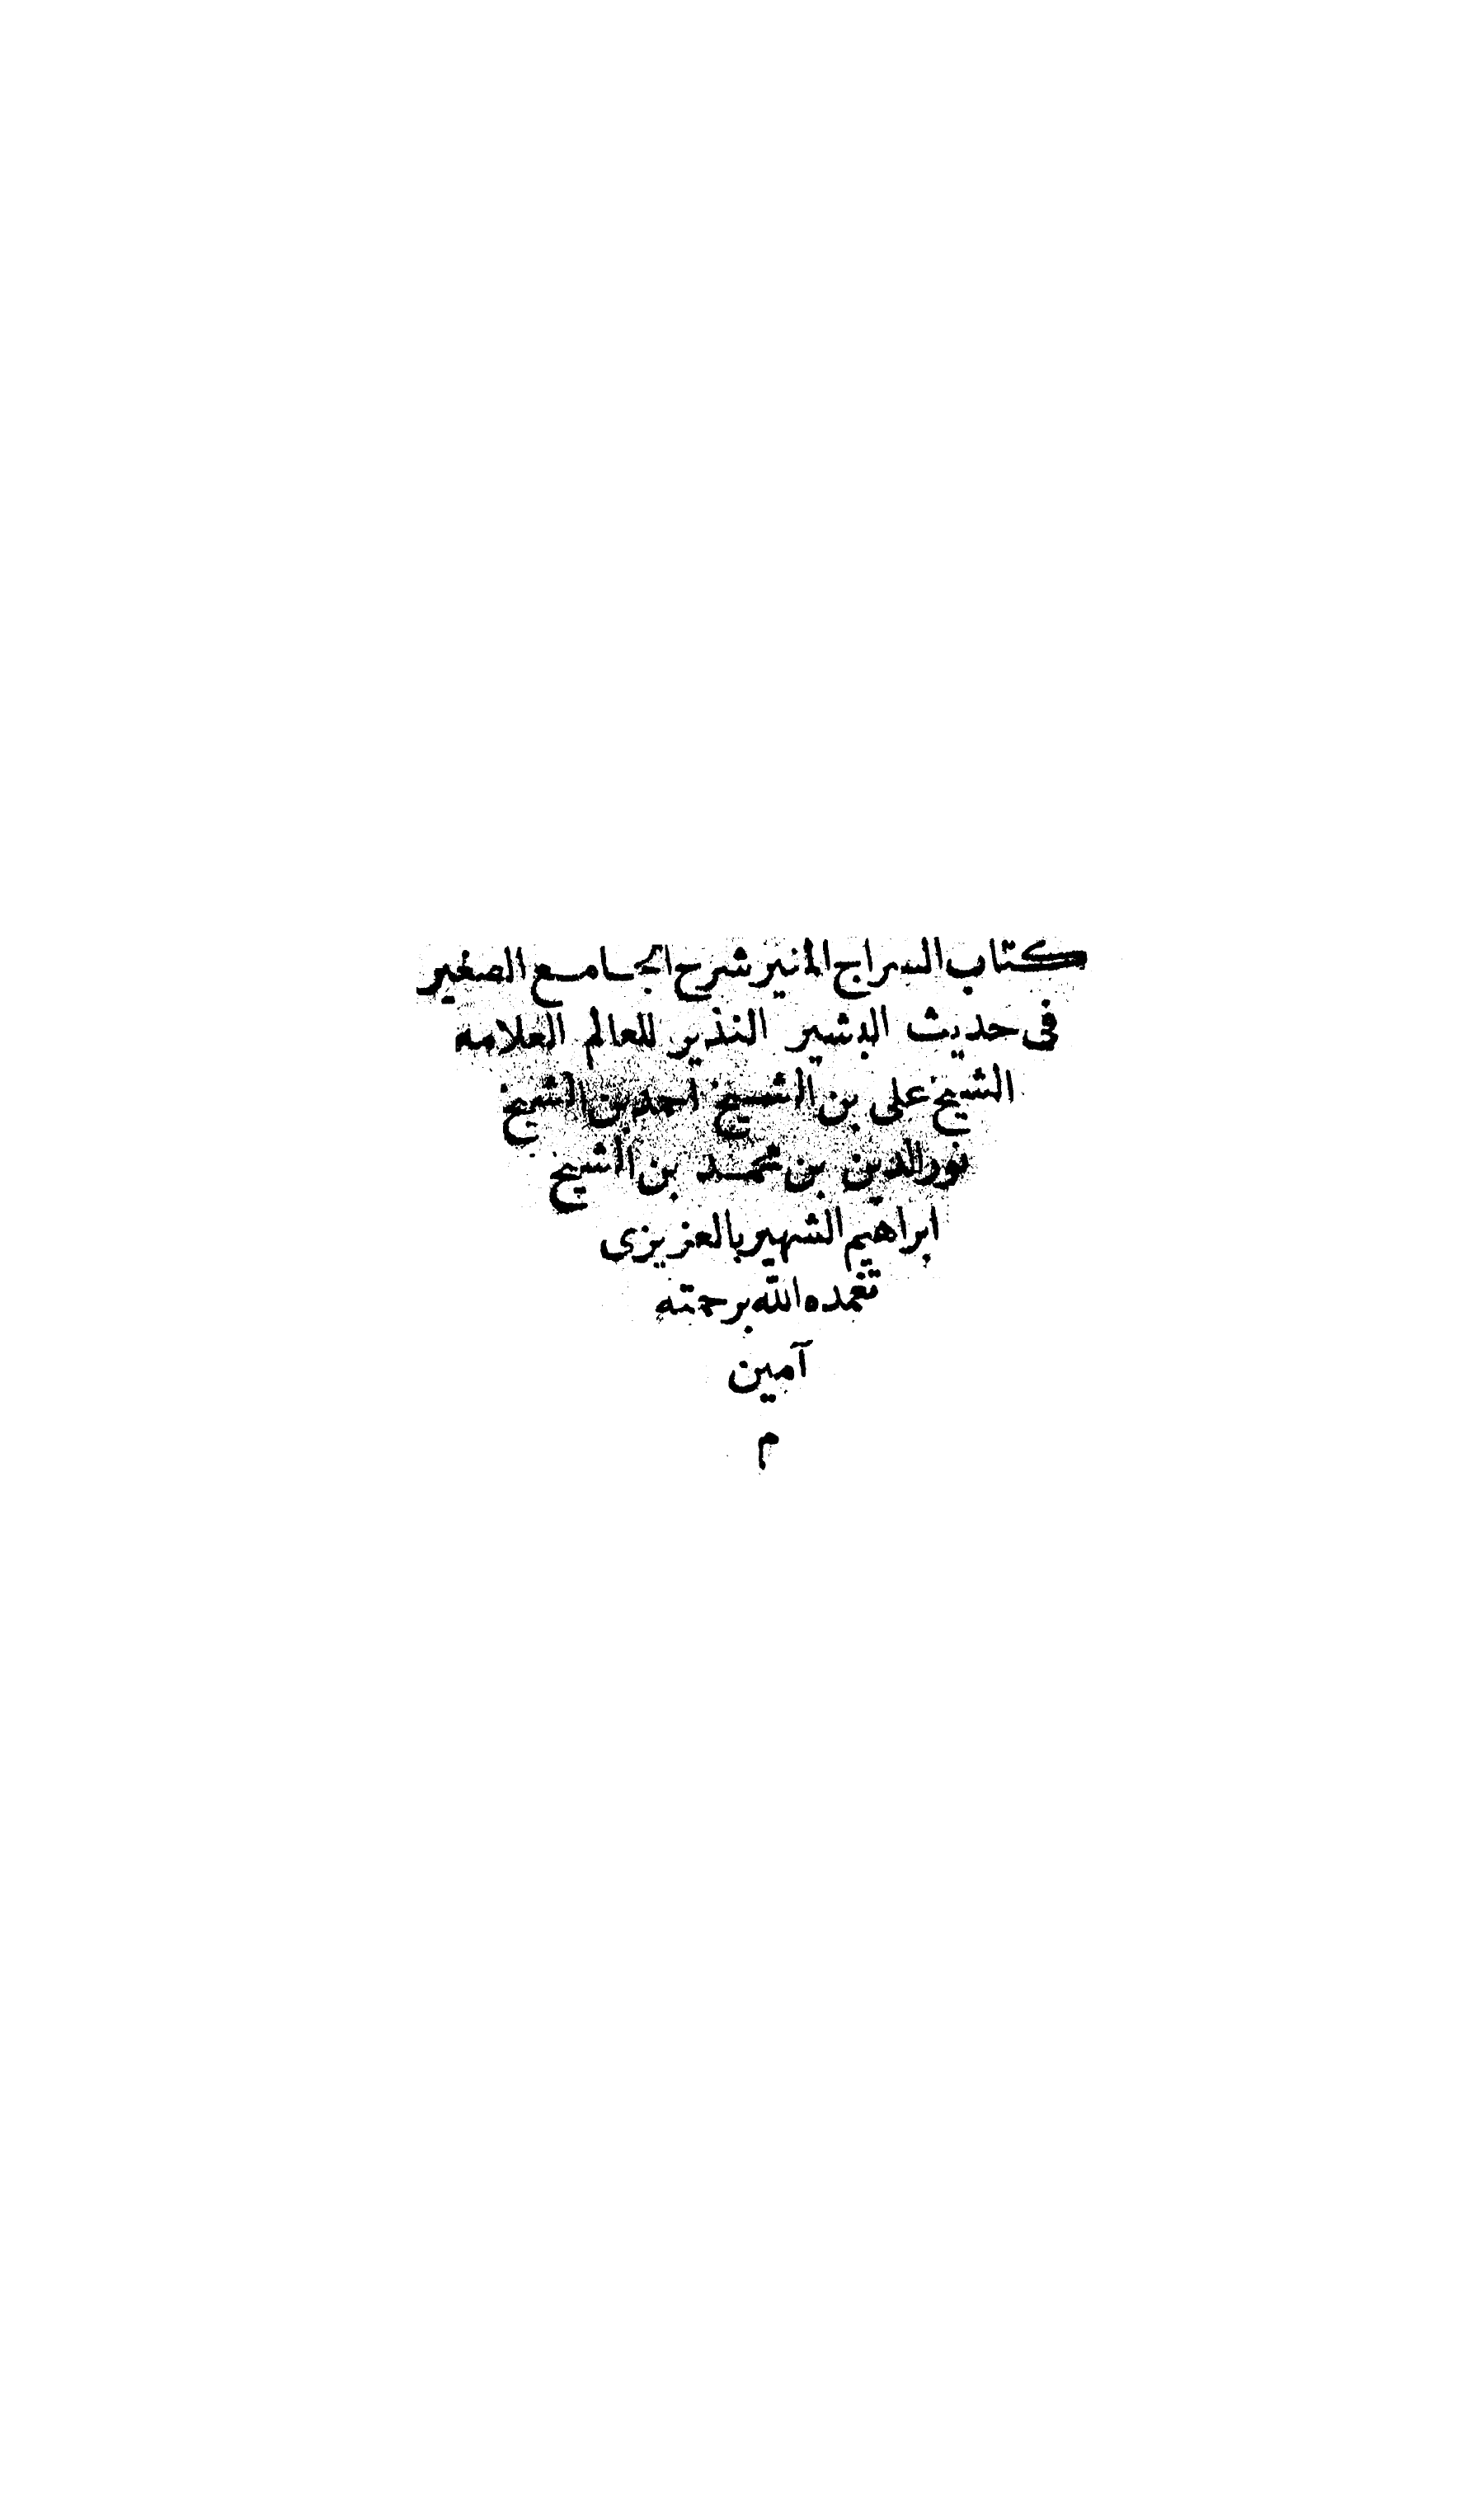 كتاب السراج المنير شرح الجامع الصغير
فى حديث البشير النذير للعالم العلامه
الشيخ على بن الشيخ احمد بن الشيخ
نور الدين بن محمد بن الشيخ
ابراهيم الشهير بالعزيزى
تغمده الله برحمته
آمين
م